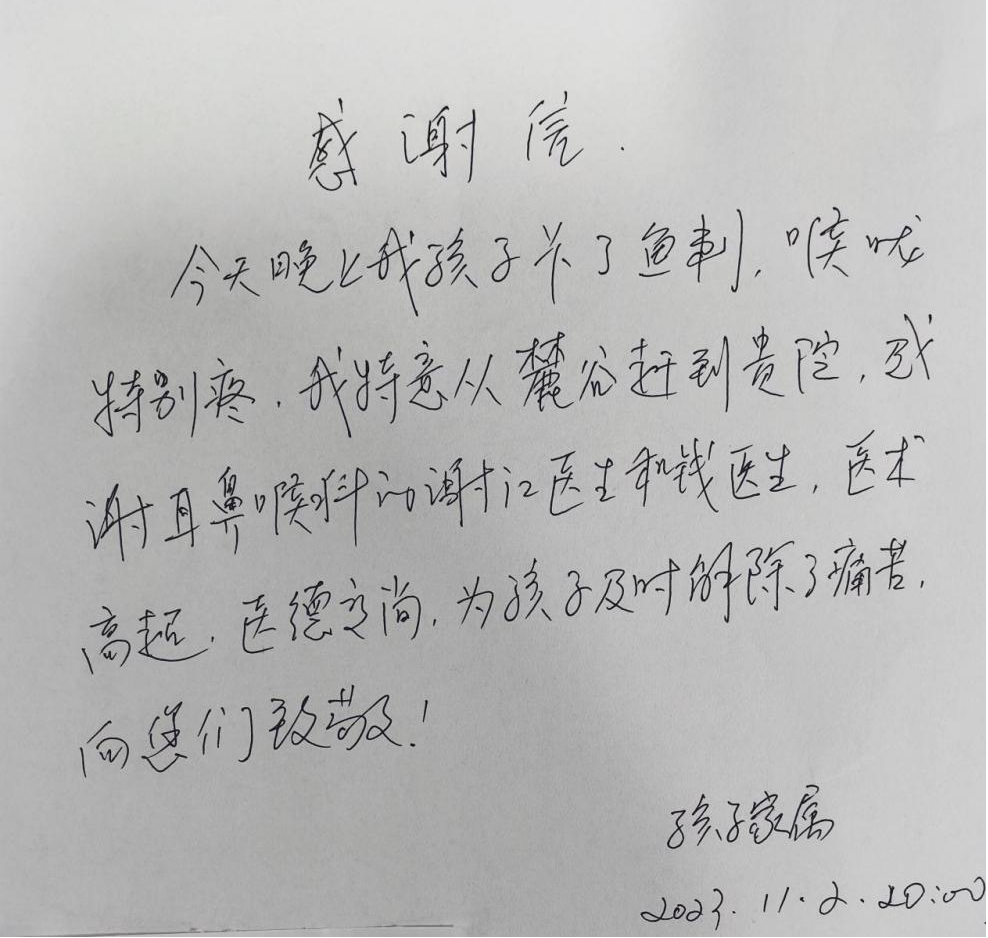 感谢信.
今天晚上我孩子卡了鱼刺，喉咙
特别疼，我特意从麓谷赶到贵院，感
谢耳鼻喉科的谢江医生和钱医生，医术
高超，医德高尚，为孩子及时解除了痛苦，
向您们致敬！
孩子家属
2023.11.2.20:00